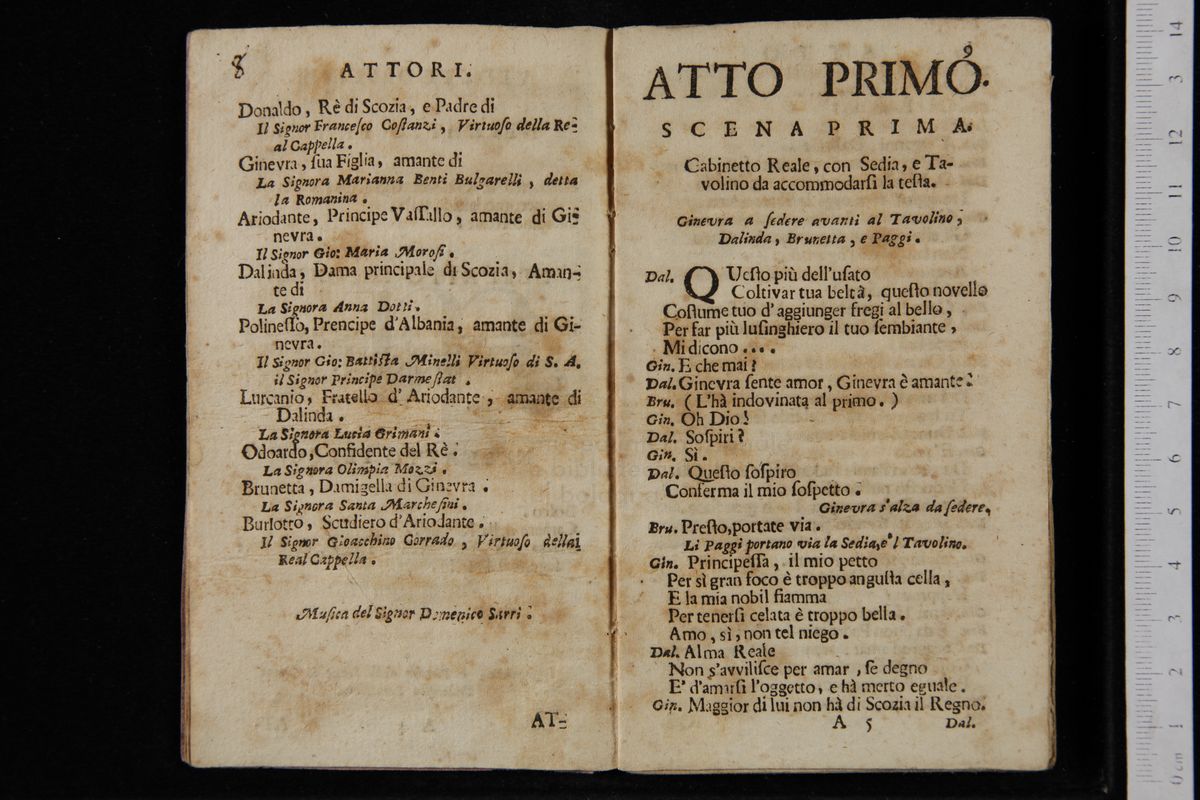 8
ATTORI.
Donaldo, Rè di Scozia, e Padre di
Il Signor Franceſco Coſtanzi, Virtuoſo della Re-
al Cappella.
Ginevra, ſua Figlia, amante di
La Signora Marianna Benti Bulgarelli, detta
la Romanina.
Ariodante, Principe Vaſſallo, amante di Gi-
nevra.
Il Signor Gio: Maria Moroſi.
Dalinda, Dama principale di Scozia, Aman-
te di
La Signora Anna Dotti.
Polineſſo, Prencipe d'Albania, amante di Gi-
nevra.
Il Signor Gio: Battiſta Minelli Virtuoſo di S. A.
il Signor Principe Darmeſtat.
Lurcanio, Fratello d'Ariodante, amante di
Dalinda.
La Signora Lucia Grimani.
Odoardo, Confidente del Rè.
La Signora Olimpia Mozzi.
Brunetta, Damigella di Ginevra.
La Signora Santa Marcheſini.
Burlotto, Scudiero d'Ariodante.
Il Signor Gioacchino Corrado, Virtuoſo della
Real Cappella.
Muſica del Signor Domenico Sarri.
AT-
9
ATTO PRIMO.
SCENA PRIMA.
Cabinetto Reale, con Sedia, e Ta-
volino da accommodarſi la teſta.
Ginevra a ſedere avanti al Tavolino,
Dalinda, Brunetta, e Paggi.
Dal. QUeſto più dell'uſato
Coltivar tua beltà, queſto novello
Coſtume tuo d'aggiunger fregi al bello,
Per far più luſinghiero il tuo ſembiante,
Mi dicono....
Gin. E che mai?
Dal. Ginevra ſente amor, Ginevra è amante.
Bru. (L'hà indovinata al primo.)
Gin. Oh Dio!
Dal. Soſpiri?
Gin. Sì.
Dal. Queſto ſoſpiro
Conferma il mio ſoſpetto.
Ginevra s'alza da ſedere.
Bru. Preſto, portate via.
Li Paggi portano via la Sedia, e'l Tavolino.
Gin. Principeſſa, il mio petto
Per sì gran foco è troppo anguſta cella,
E la mia nobil fiamma
Per tenerſi celata è troppo bella.
Amo, sì, non tel niego.
Dal. Alma Reale
Non s'avviliſce per amar, ſe degno
E' d'amarſi l'oggetto, e hà merto eguale.
Gin. Maggior di lui non hà di Scozia il Regno.
A 5 Dal.
14
13
12
11
10
9
8
7
6
5
4
3
2
1
0 cm